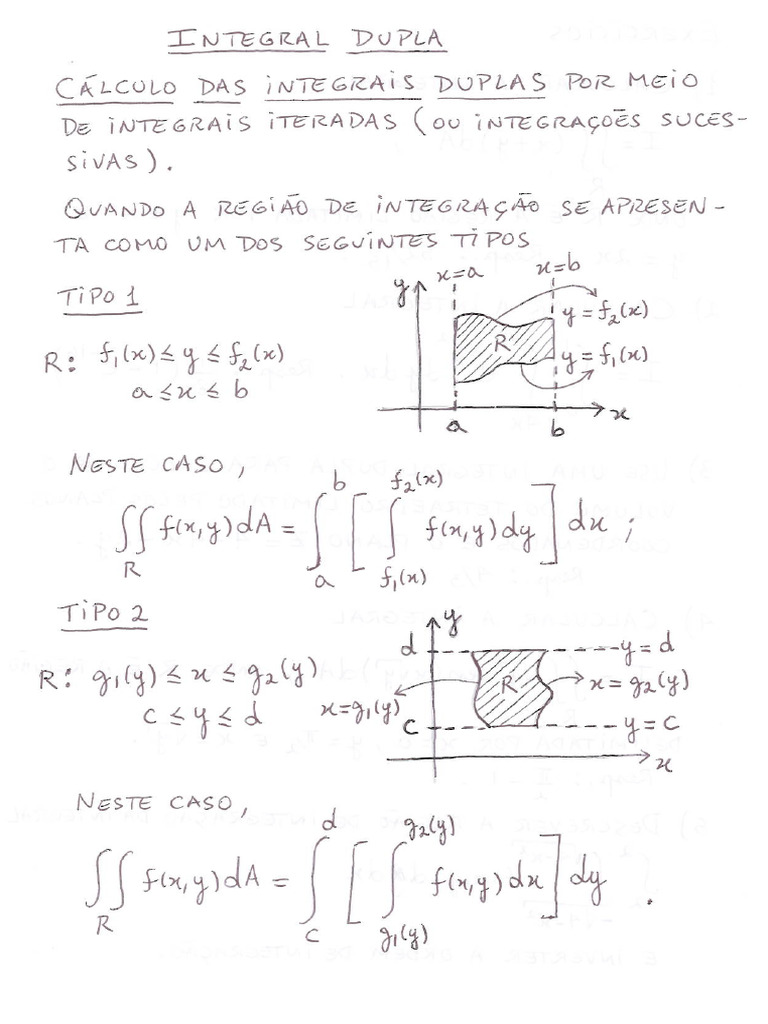 INTEGRAL DUPLA
CÁLCULO DAS INTEGRAIS DUPLAS POR MEIO
DE INTEGRAIS ITERADAS (OU INTEGRAÇÕES SUCES-
SIVAS).
QUANDO A REGIÃO DE INTEGRAÇÃO SE APRESEN-
TA COMO UM DOS SEGUINTES TIPOS
TIPO 1
R: f₁(x) ≤ y ≤ f₂(x)
a ≤ x ≤ b
y x=a x=b
y = f₂(x)
R y = f₁(x)
a b x
NESTE CASO,
∬_R f(x,y) dA = ∫_a^b [ ∫_{f₁(x)}^{f₂(x)} f(x,y) dy ] dx ;
TIPO 2
R: g₁(y) ≤ x ≤ g₂(y)
c ≤ y ≤ d
y
d y = d
R x = g₂(y)
x = g₁(y)
c y = c
x
NESTE CASO,
∬_R f(x,y) dA = ∫_c^d [ ∫_{g₁(y)}^{g₂(y)} f(x,y) dx ] dy .